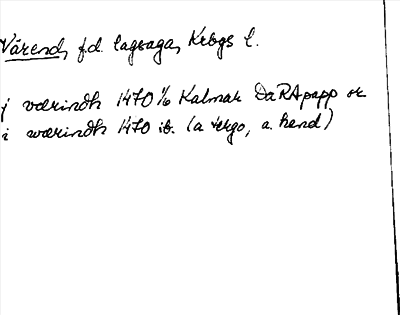 Värend, f.d. lagsaga, Krbgs l.
j værindh 1470 1/6 Kalmar DaRApapp or
i wærindh 1470 ib. (a tergo, a. hend)